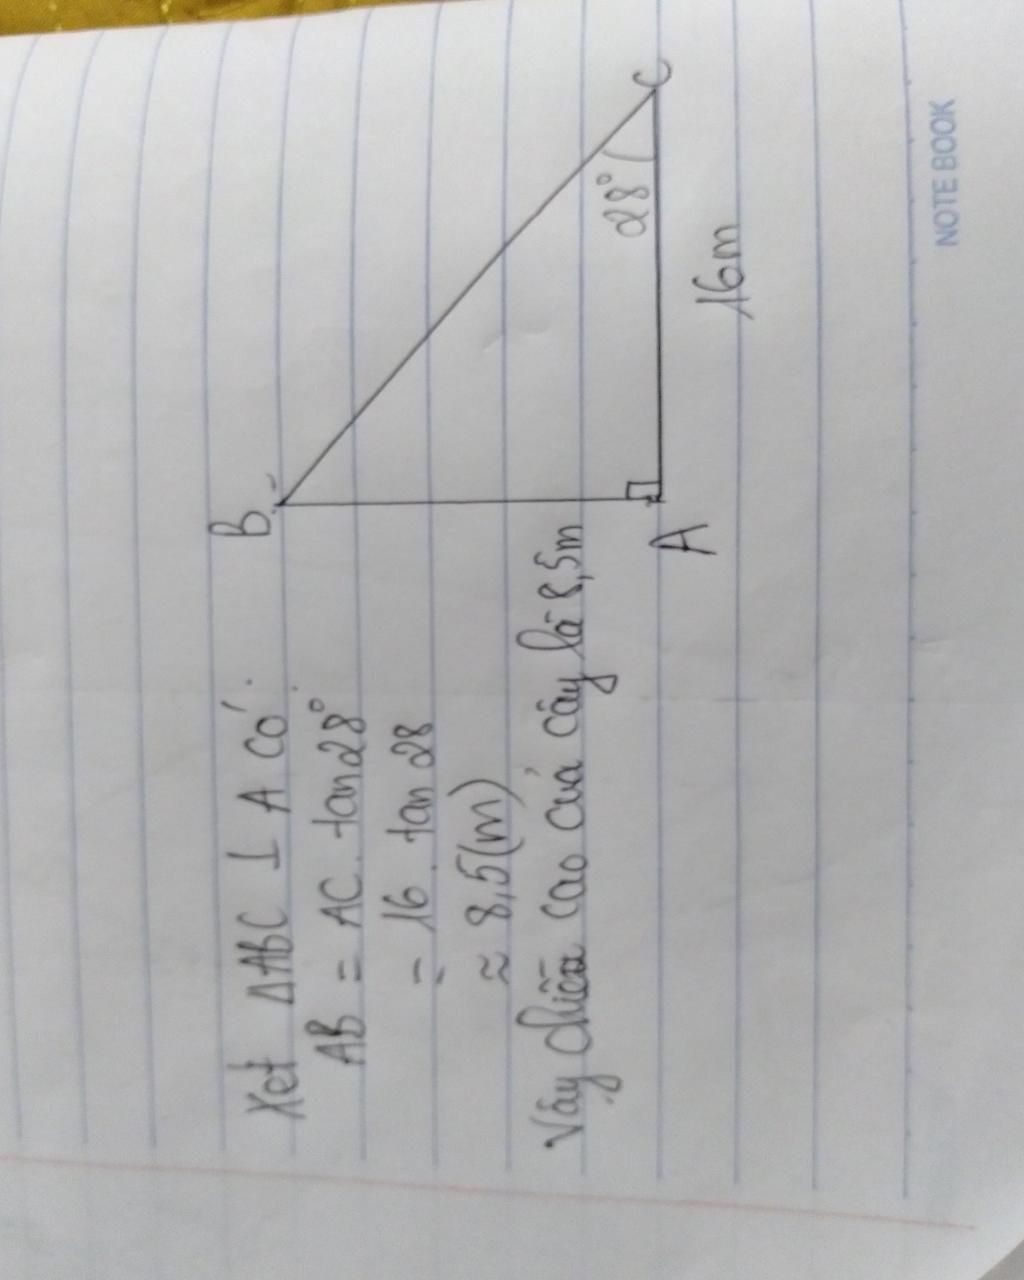 Xét ΔABC ⊥ A có:
AB = AC . tan28°
= 16 . tan 28
≈ 8,5(m)
Vậy chiều cao của cây là 8,5m
B
C
28°
16m
A
NOTE BOOK